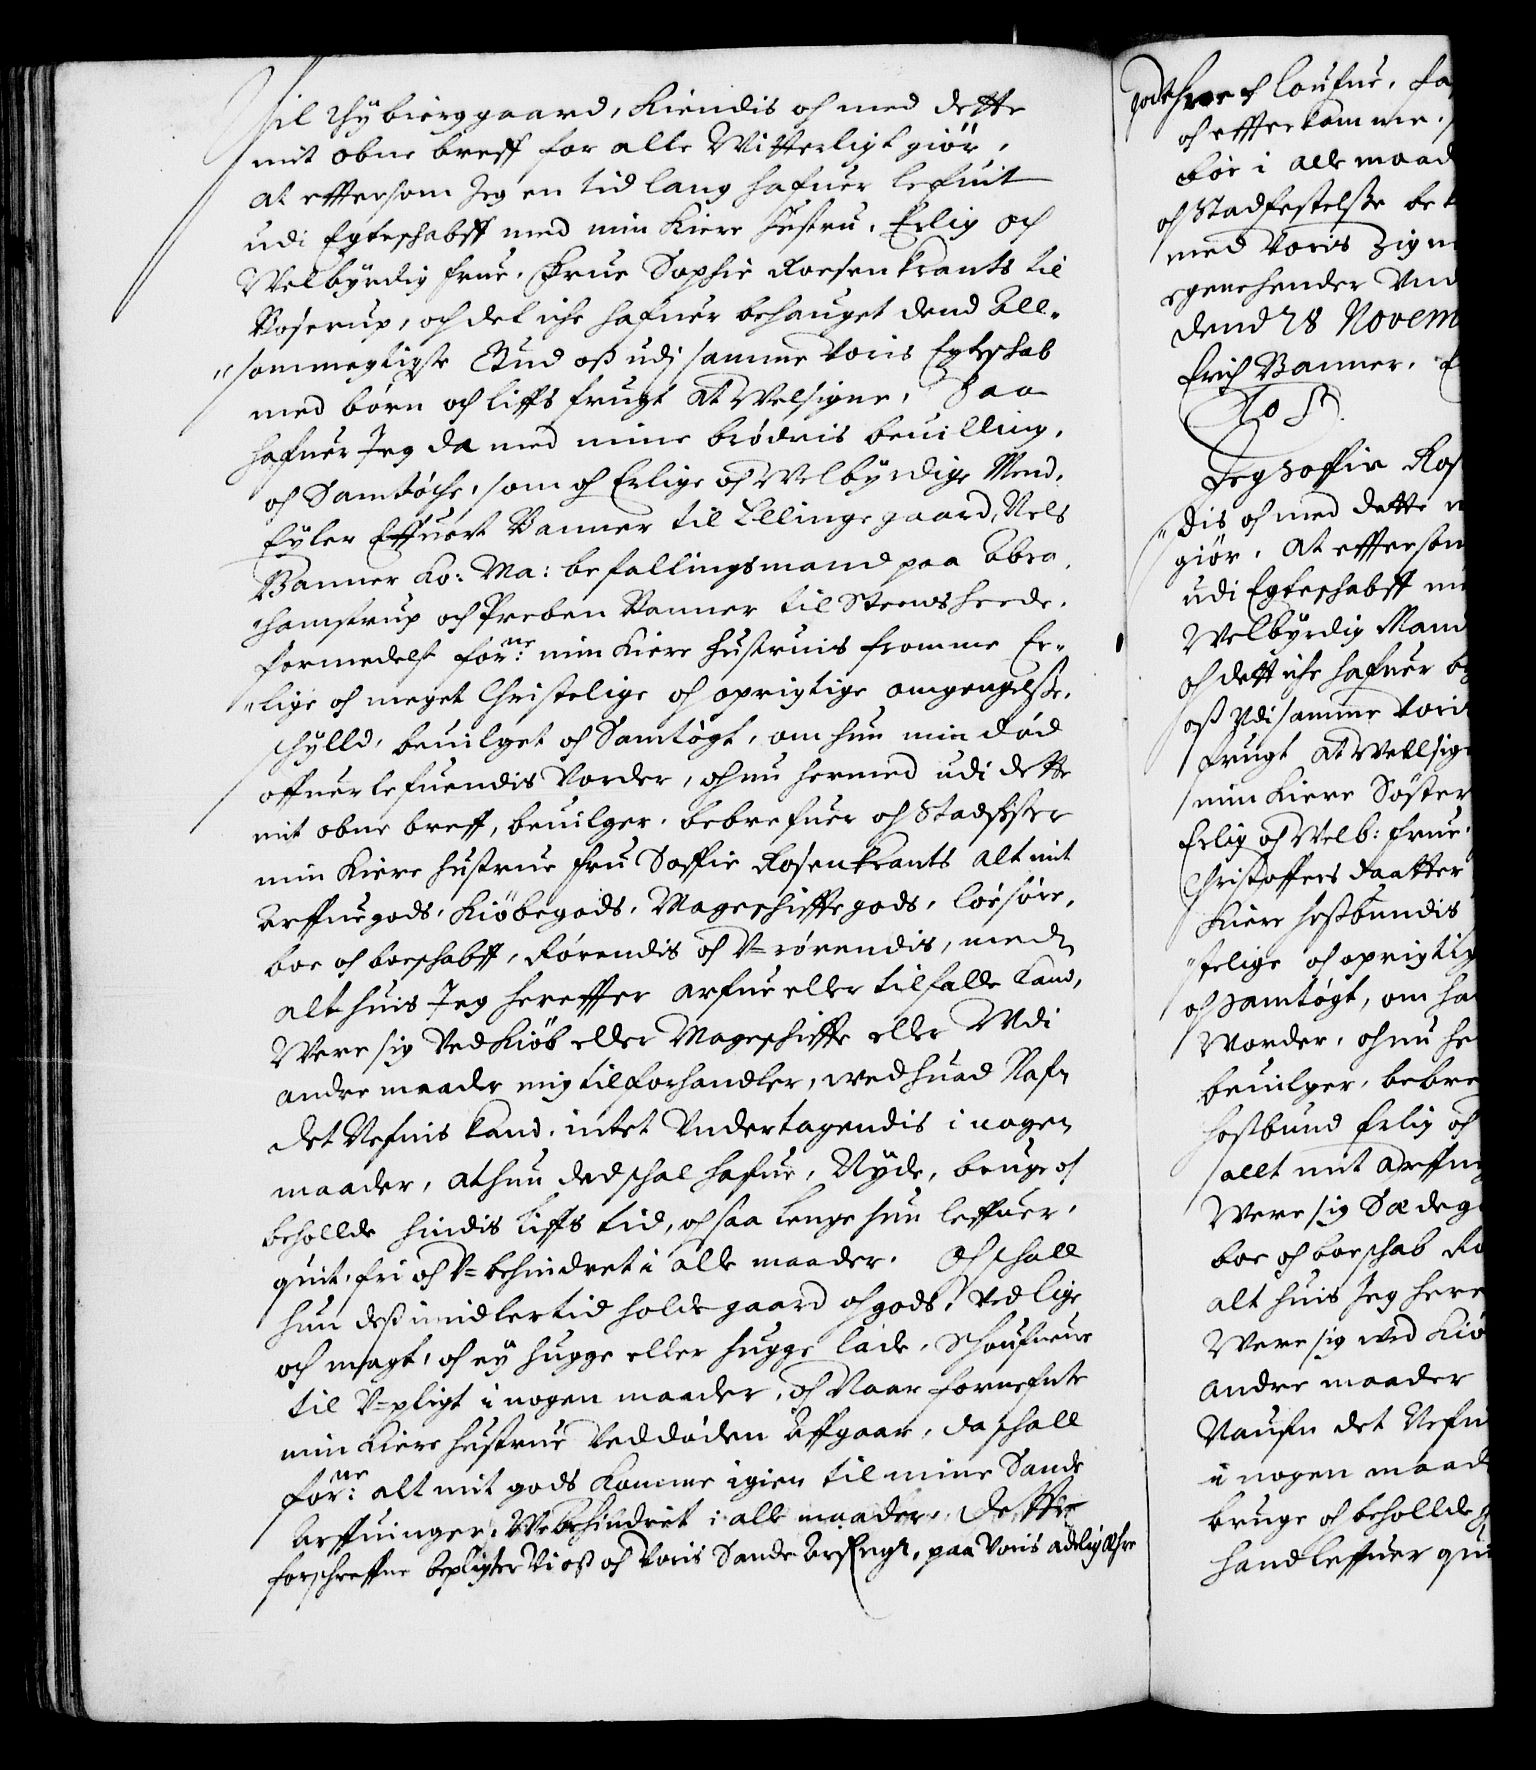 til Rybierggaard, Kiendis och med dette
mit obne breff for alle Witterligt giör,
at effttersom Jeg en tid lang hafuer lefuit
udi Egteschabff med min Kiere hustru, Erlig och
Welbyrdig frue, Frue Sophie Rosenkrantz til
och det iche hafuer behauget dend All-
sommegtigste Gud oß udj samme voris Egteschab
med börn och liffs frugt at Welsigne, Saa
hafuer Jeg da med mine brödris beuilling,
och Samtöche, som och Erlige och Welbyrdige Mend,
Eyler Effuert Banner til Ellinggaard, Nels
Banner Ko: Ma: befallingsmand paa Abra-
hamstrup och Preben Banner til Steensheede,
formedelst forne: min Kiere hustruis fromme Er-
lige och meget Christelige och oprigtige omgengelße,
schylld, beuilget och Samtögt, om hun min död
offuerlefuendis vorder, och nu hermed udi dette
mit obne breff, beuilger, bebrefuer och Stadfister
min Kiere hustrue fru Soffie Rosenkrants alt mit
Arffuegods, Kiöbegods, Mageschiffte gods, löesöre,
boe och boeschabff, Rörendis och V-rörendis, med
alt huis Jeg hereffter arfue eller tilfalde kand,
Were sig Ved Kiöb eller Mageschiffte eller Udi
andre maader mig tilforhandler, wed huad Nafn
det Nefnis kand, intet Undertagendis i nogen
maader, at hun ded schal hafue, Nyde, bruge och
beholde hindis Liffs tid, och saa lenge hun leffuer,
quit, fri och V-behindret i alle maader. Och schall
hun deß imidlertid holde gaard och gods, Ved lige
och magt, och ey hugge eller hugge lade, Schoufuene
til V-pligt i nogen maader, och Naar fornefnte
min Kiere hustrue Ved döden affgaar, da schall
forne: alt mit gods komme igien til mine Sande
Arffuinger, Vbehindret i alle maader, Dette
forschreffne bepligter Vi oß och Voris Sande Arfuinge, paa Voris adelig Ahre
och loufue,
och effterkomme,
bör i alle maad
och Stadfestelße be
med Voris Zign
egenehender Und
dend 28 Novem
Erich Banner. E
Jeg Soffie Ros
dis och med dette m
giör, At effterson
udi Egteschabff me
Welbyrdig Mand
och dett iche hafuer be
oß Udi samme vori
frugt at Wellsig
min Kiere Söster
Erlig och Welb: frue,
Christoffers daatter
Kiere hoßbundis
stelige och oprigtig
och Samtögt, om ha
Worder, och nu he
beuilger, bebre
hoßbund Erlig och
allt mit Arffue
Were sig Sædeg
boe och boeschab Rö
alt huis Jeg here
Were sig wed Kiö
andre maader
Naufn det Nefn
i nogen maad
bruge och beholde
hand leffuer qui